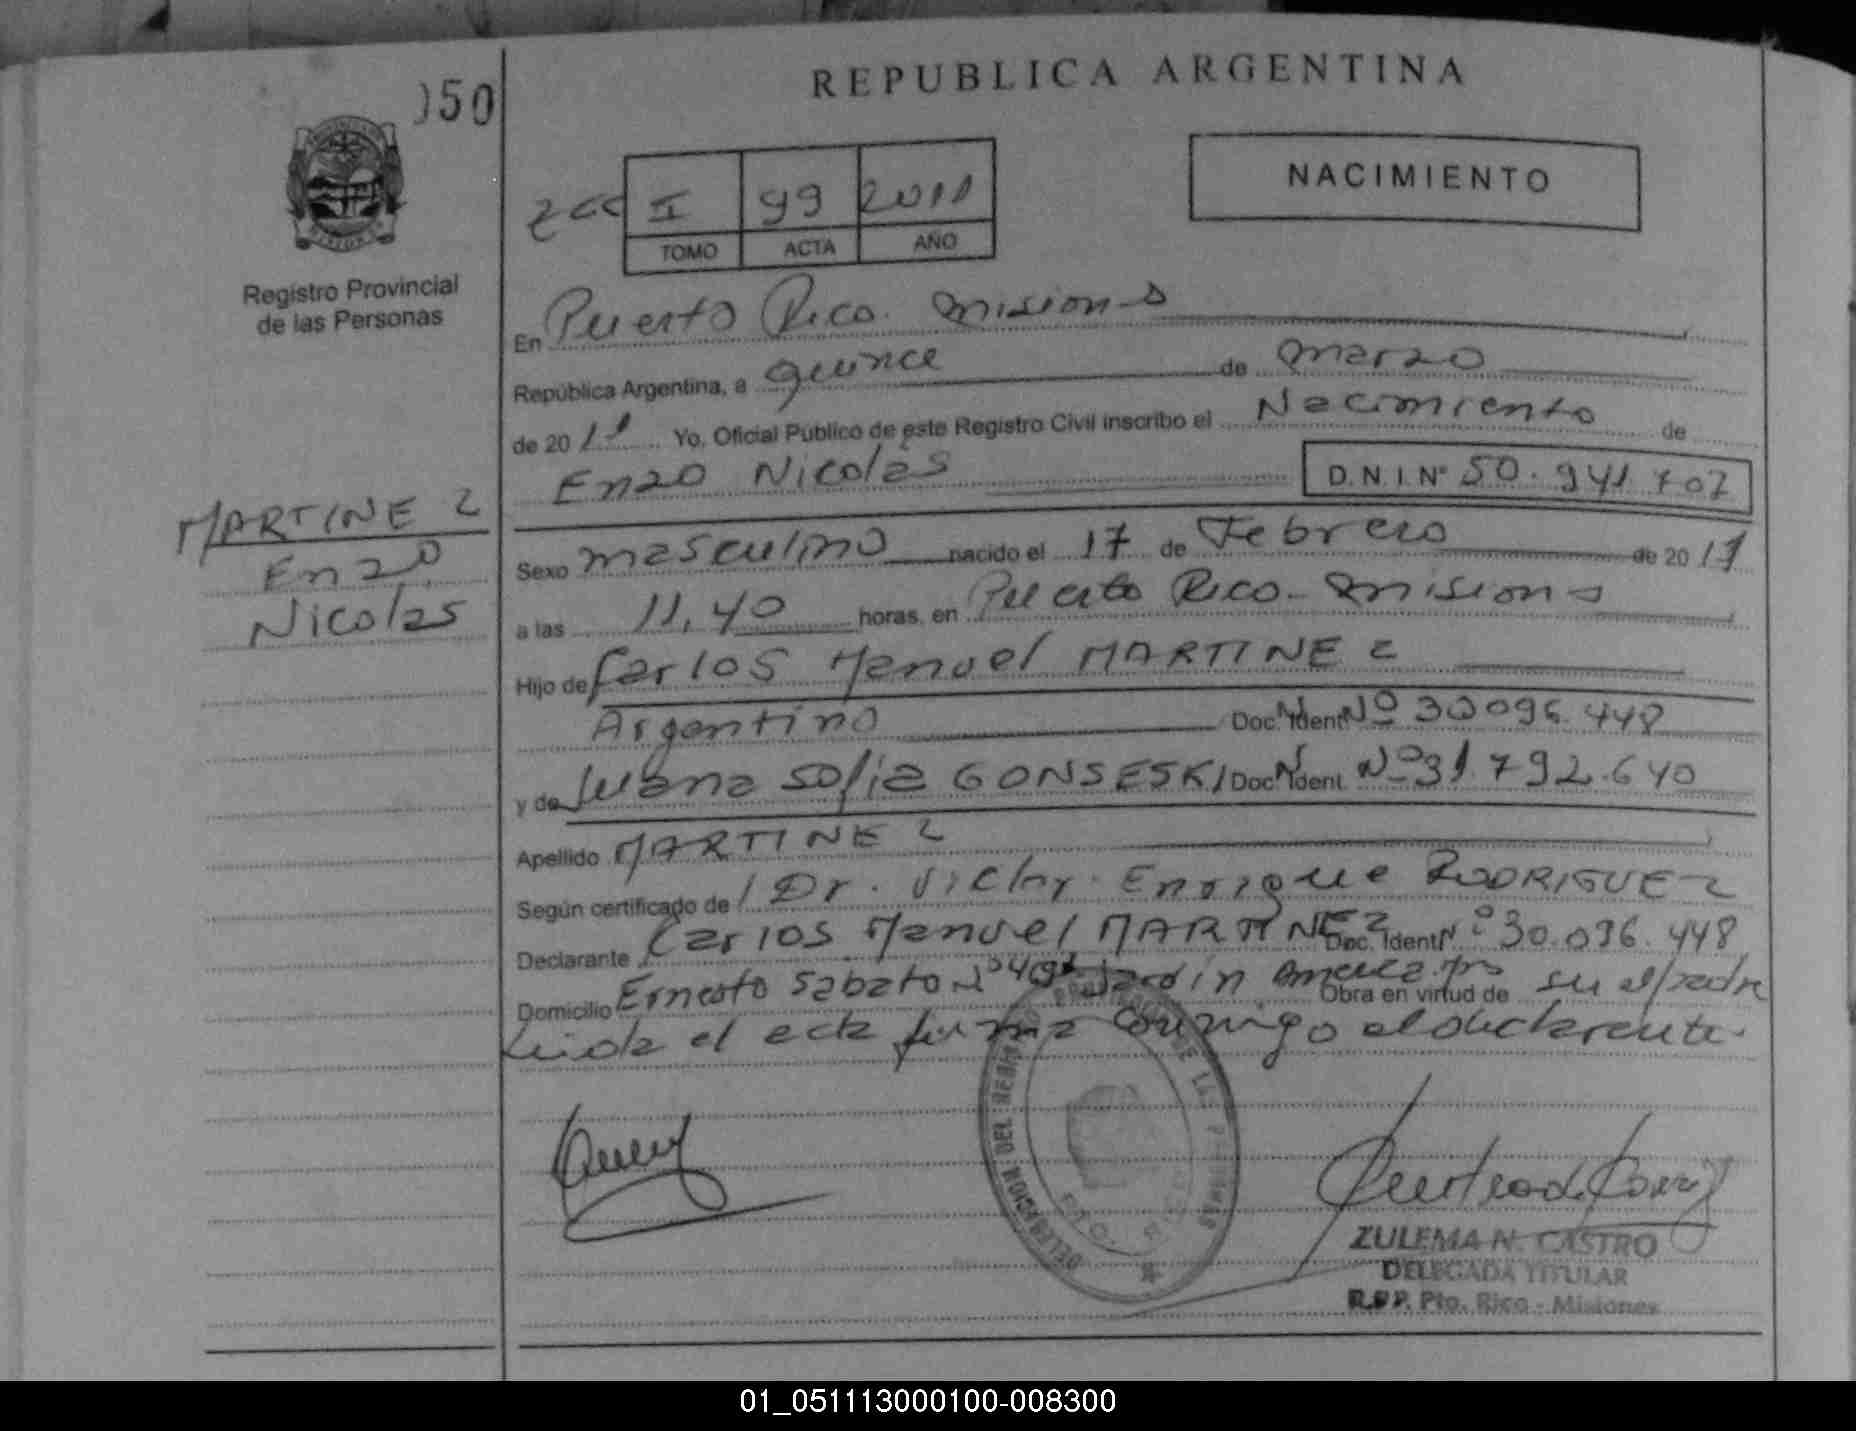 050
REPUBLICA ARGENTINA
NACIMIENTO
I 99 2011
TOMO ACTA AÑO
Registro Provincial
de las Personas
En Puerto Rico. Misiones
República Argentina, a quince de marzo
de 2011 Yo, Oficial Público de este Registro Civil inscribo el Nacimiento de
Enzo Nicolás D.N.I.N° 50.941.707
MARTINEZ
Enzo
Nicolas
Sexo masculino nacido el 17 de Febrero de 2011
a las 11,40 horas, en Puerto Rico - Misiones
Hijo de Carlos Manuel MARTINEZ
Argentino Doc. Ident. Nº 30096.448
y de Juana Sofia GONSESKI Doc. Ident. Nº 31.792.640
Apellido MARTINEZ
Según certificado de Dr. Victor Enrique RODRIGUEZ
Declarante Carlos Manuel MARTINEZ Doc. Ident. Nº 30.096.448
Domicilio Ernesto Sabato Nº Jardin America Obra en virtud de su el padre
Leida el acta firma conmigo el declarante.
DELEGACION DEL REGISTRO PROVINCIAL DE LAS PERSONAS
PTO. RICO
ZULEMA N. CASTRO
DELEGADA TITULAR
R.P.P. Pto. Rico - Misiones
01_051113000100-008300